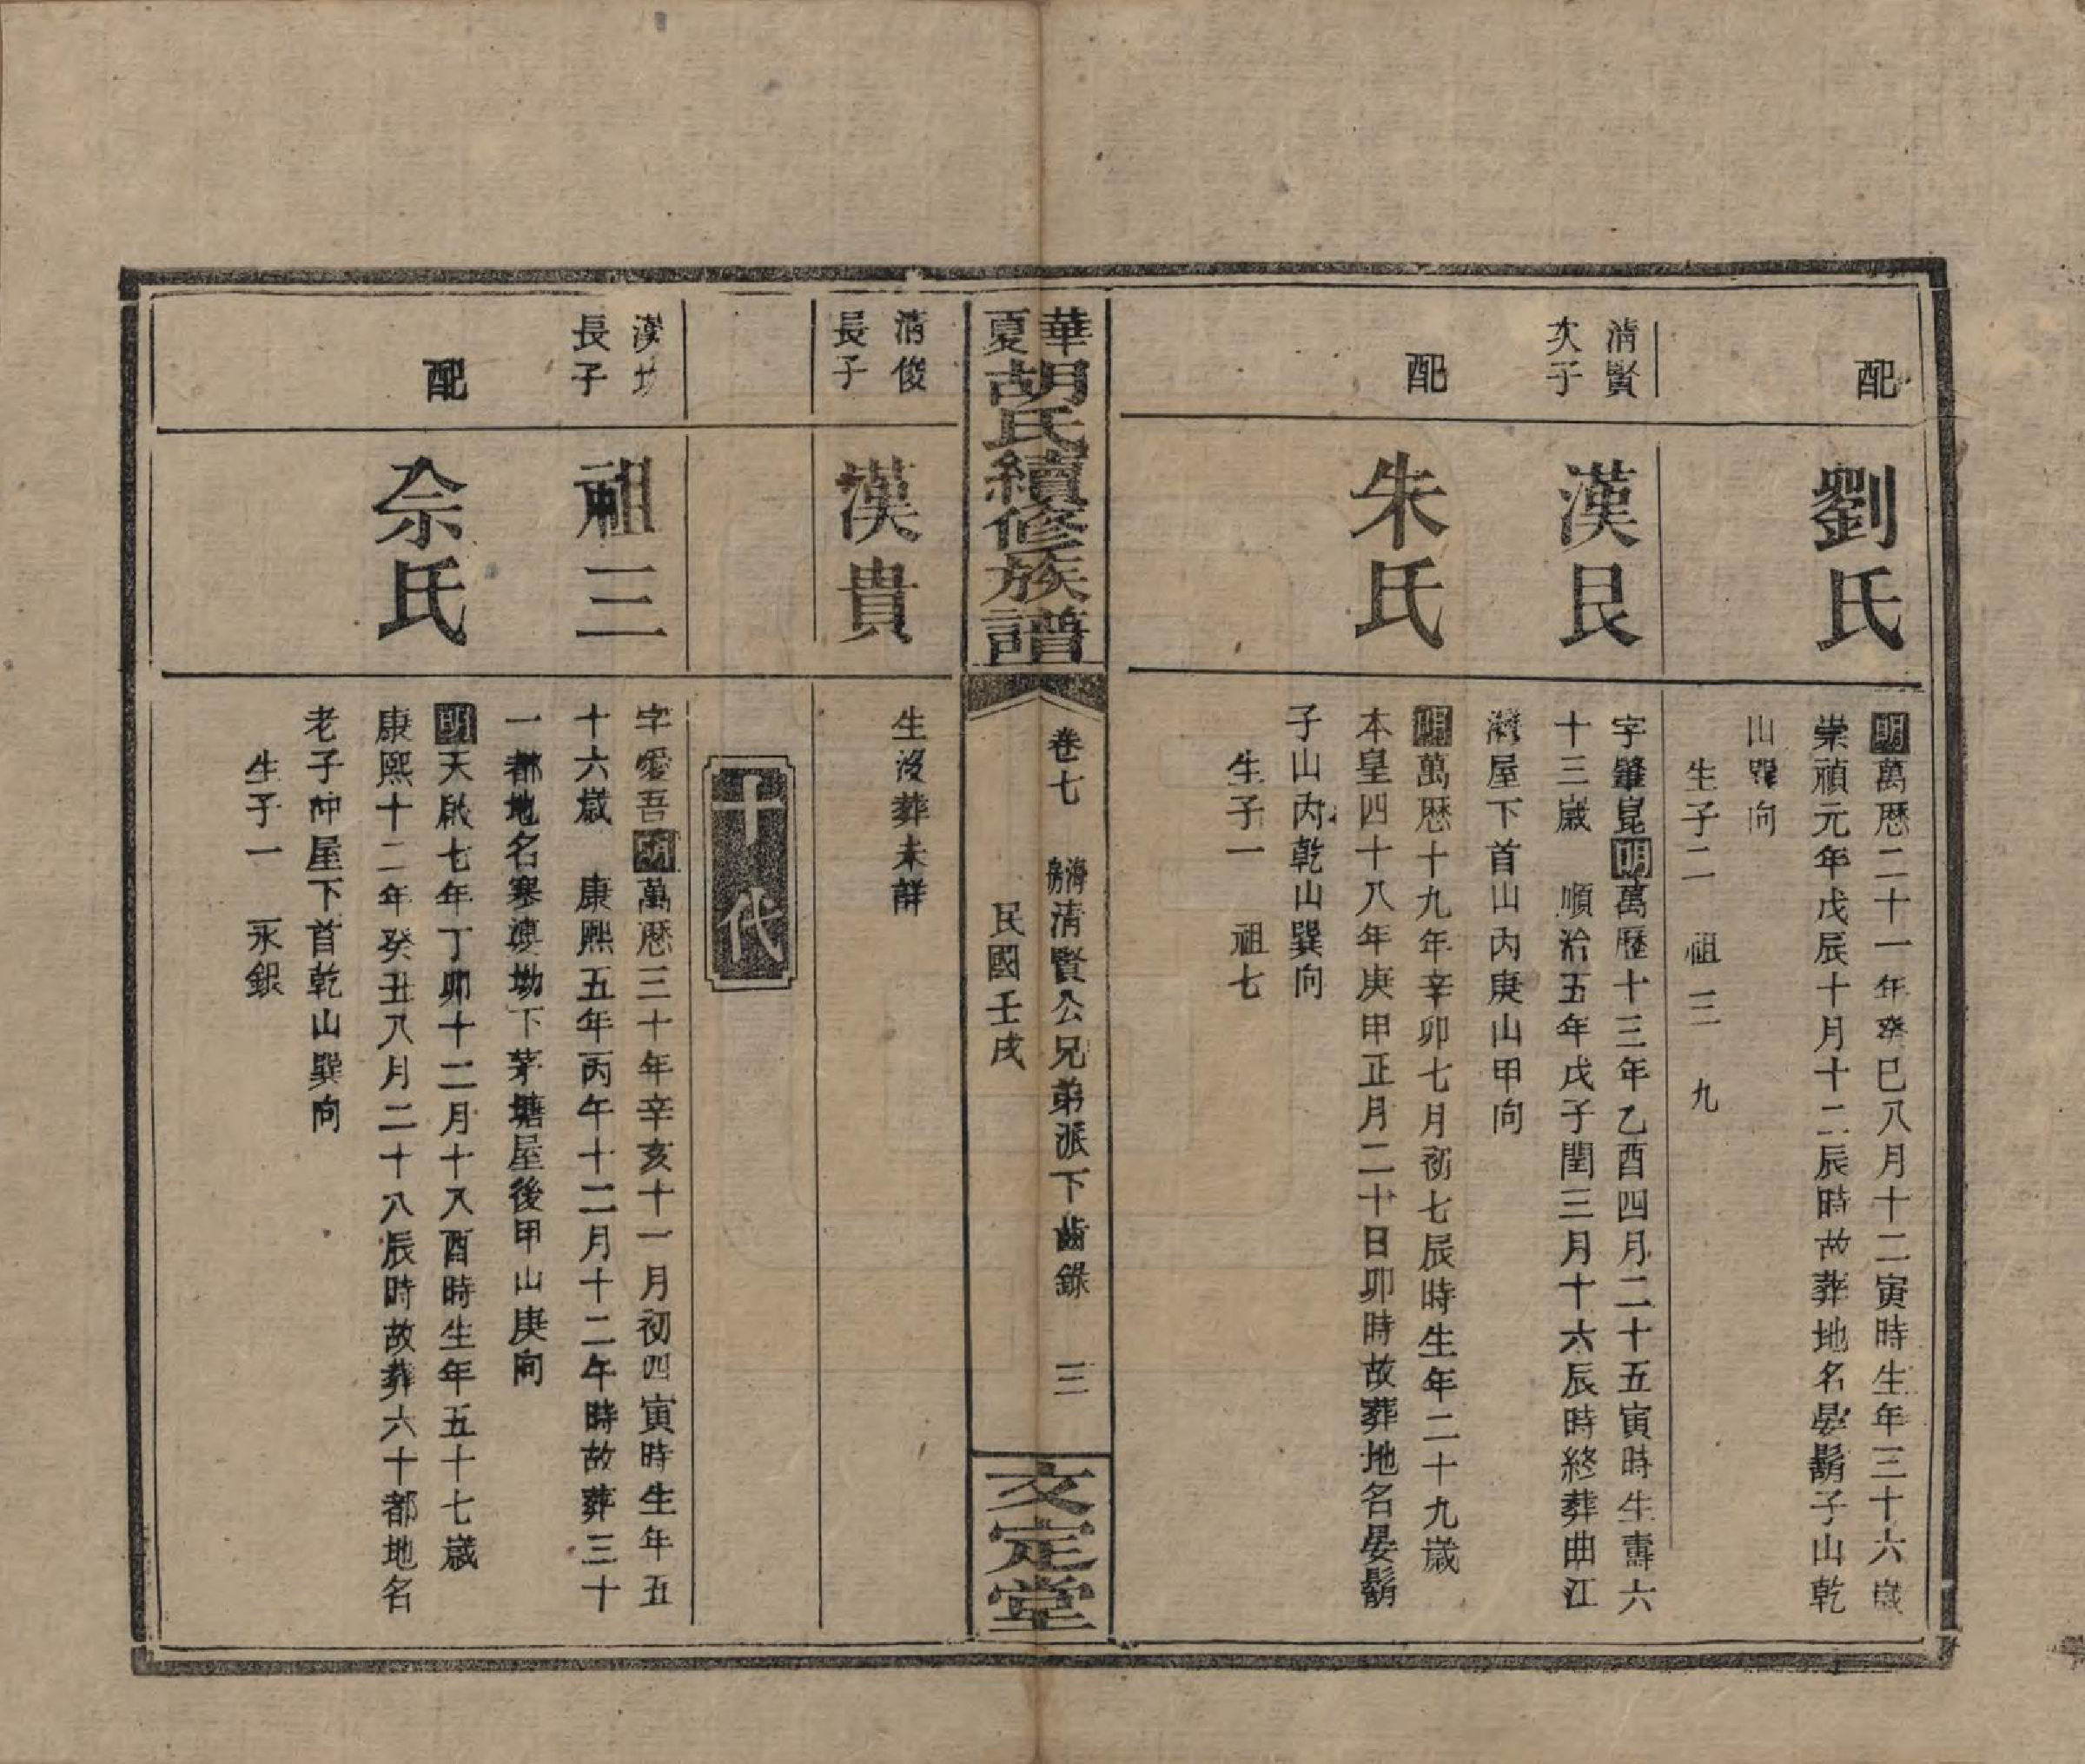 配
劉氏
明萬歷二十一年癸巳八月十二寅時生年三十六歲
崇禎元年戊辰十月十二辰時故葬地名晏鬍子山乾
山巽向
生子二　祖三　九
清賢
次子
漢艮
字肇崑明萬歷十三年乙酉四月二十五寅時生壽六
十三歲　順治五年戊子閏三月十六辰時終葬曲江
灣屋下首山內庚山甲向
配
朱氏
明萬歷十九年辛卯七月初七辰時生年二十九歲
本皇四十八年庚申正月二十日卯時故葬地名晏鬍
子山內乾山巽向
生子一　祖七
華夏胡氏續修族譜
卷七　海房清賢公兄弟派下齒錄　三
民國壬戌
文定堂
清俊
長子
漢貴
生沒葬未詳
十代
長子
祖三
字愛吾明萬歷三十年辛亥十一月初四寅時生年五
十六歲　康熙五年丙午十二月十二午時故葬三十
一都地名寒婆坳下茅塘屋後甲山庚向
配
佘氏
明天啟七年丁卯十二月十八酉時生年五十七歲
康熙十二年癸丑八月二十八辰時故葬六十都地名
老子冲屋下首乾山巽向
生子一　永銀